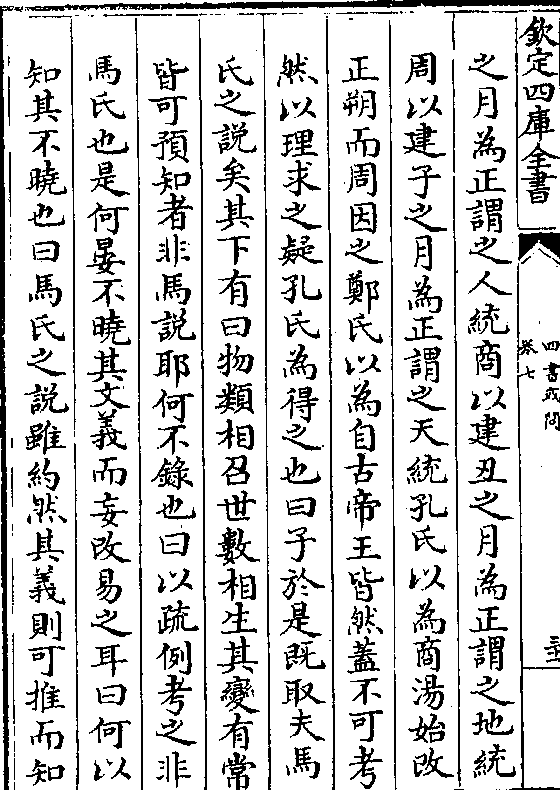 欽定四庫全書
四書或問
卷七
之月為正謂之人統商以建丑之月為正謂之地統
周以建子之月為正謂之天統孔氏以為商湯始改
正朔而周因之鄭氏以為自古帝王皆然蓋不可考
然以理求之疑孔氏為得之也曰子於是既取夫馬
氏之說矣其下有曰物類相召世數相生其變有常
皆可預知者非馬說耶何不錄也曰以疏例考之非
馬氏也是何晏不曉其文義而妄改易之耳曰何以
知其不曉也曰馬氏之說雖約然其義則可推而知